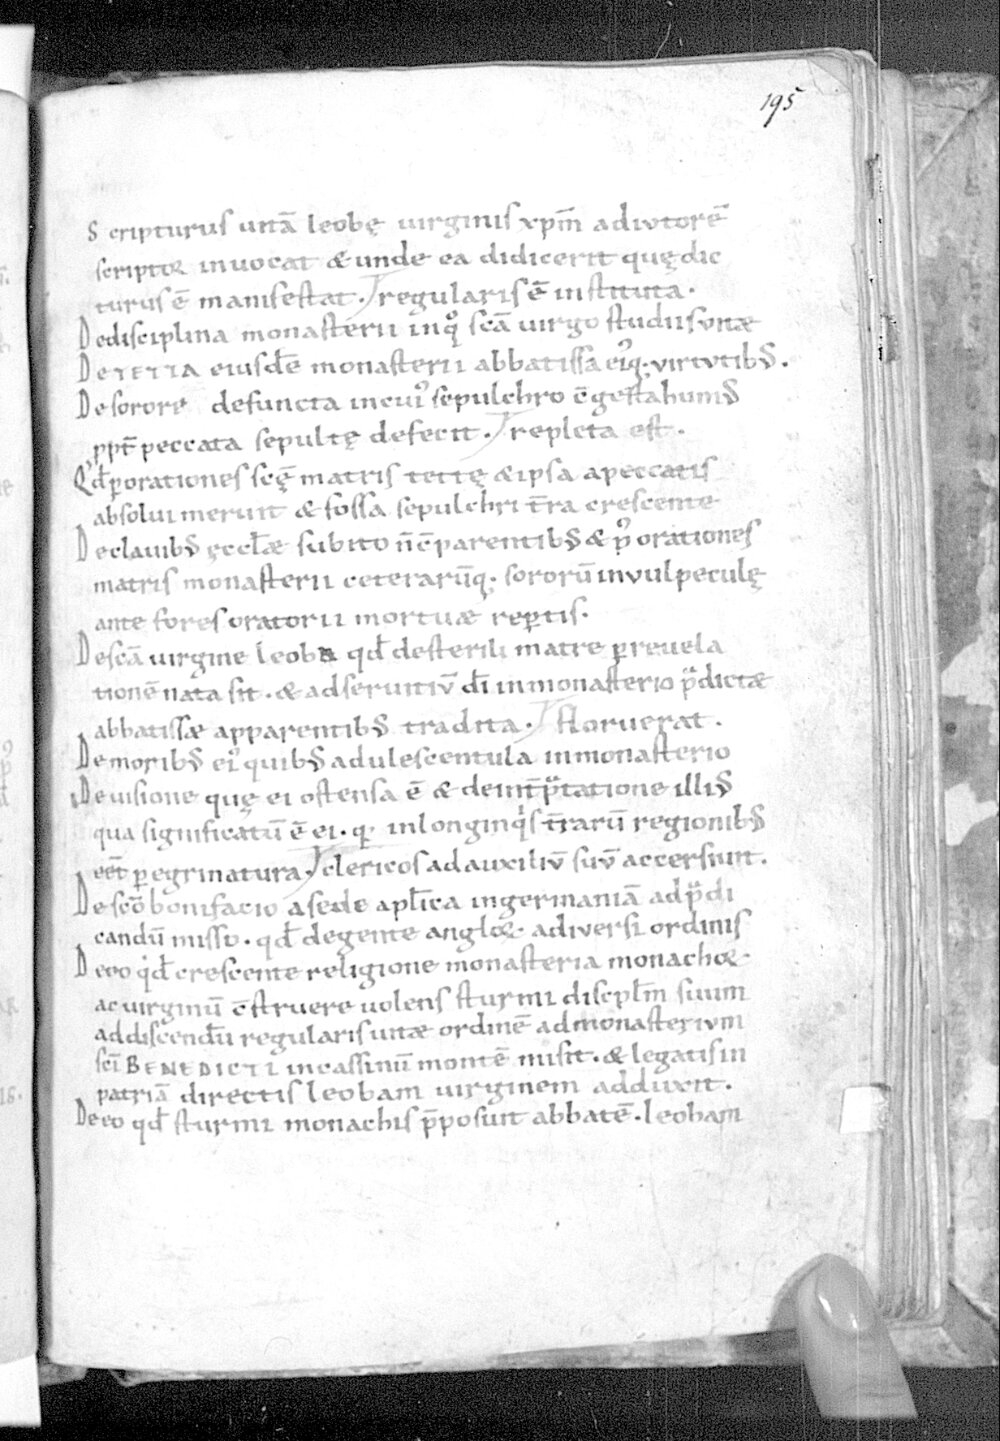 195
Scripturus uitā leobę uirginis xpm̄ adiutorē
scriptor inuocat & unde ea didicerit quę dic
turus ē manifestat. regularis ē instituta.
De disciplina monasterii in qͦ scā uirgo studiis uitæ
De TETTA eiusdē monasterii abbatissa eiꝰq; uirtutibꝰ.
De sorore defuncta in cuiꝰ sepulchro c̄gesta humꝰ
ppt̄ peccata sepultę defecit. repleta est.
Qd̄ ꝑ orationes scę̄ matris tettę & ipsa a peccatis
absolui meruit & fossa sepulchri t̄ra crescente
De clauibꝰ ęccl̄æ subito n̄ c̄parentibꝰ & ꝑ orationes
matris monasterii ceterarūq; sororū in uulpeculę
ante fores oratorii mortuæ reꝑtis.
De scā uirgine leoba qd̄ de sterili matre ꝑ reuela
tionē nata sit. & ad seruitiū dī in monasterio p̄dictæ
abbatissæ apparentibꝰ tradita. floruerat.
De moribꝰ eiꝰ quibꝰ adulescentula in monasterio
De uisione quę ei ostensa ē & de int̄p̄tatione illiꝰ
qua significatū ē ei. q in longinqͥs t̄rarū regionibꝰ
eēt ꝑegrinatura. clericos ad auxiliū suū accersiuit.
De scō bonifacio a sede apl̄ica in germaniā ad p̄di
candū misso. qd̄ de gente angloꝝ adiuersi ordinis
De eo qͥd̄ crescente religione monasteria monachoꝝ
ac uirginū c̄struere uolens sturmi discipl̄m suum
ad discendū regularis uitæ ordinē ad monasterium
sc̄i BENEDICTI in cassinū montē misit. & legatis in
patriā directis leobam uirginem adduxit.
De eo qd̄ sturmi monachis p̄posuit abbatē. leobam